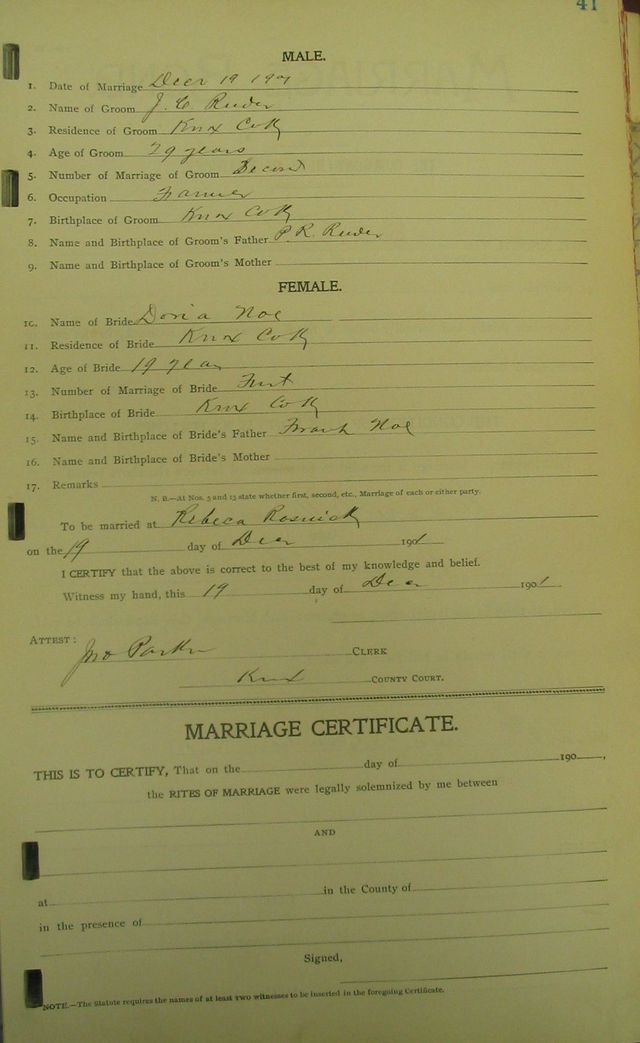 41
MALE.
1. Date of Marriage Decr 19 1901
2. Name of Groom J. C. Rueder
3. Residence of Groom Knox Co Ky
4. Age of Groom 29 years
5. Number of Marriage of Groom Second
6. Occupation Farmer
7. Birthplace of Groom Knox Co Ky
8. Name and Birthplace of Groom's Father P. R. Rueder
9. Name and Birthplace of Groom's Mother
FEMALE.
10. Name of Bride Doria Noe
11. Residence of Bride Knox Co Ky
12. Age of Bride 19 year
13. Number of Marriage of Bride First
14. Birthplace of Bride Knox Co Ky
15. Name and Birthplace of Bride's Father Frank Noe
16. Name and Birthplace of Bride's Mother
17. Remarks
N. B.—At Nos. 5 and 13 state whether first, second, etc., Marriage of each or either party.
To be married at Rebeca
on the 19 day of Decr 1901
I CERTIFY that the above is correct to the best of my knowledge and belief.
Witness my hand, this 19 day of Dec 1901
ATTEST:
Jno Parker CLERK
Knox COUNTY COURT.
MARRIAGE CERTIFICATE.
THIS IS TO CERTIFY, That on the day of 190 ,
the RITES OF MARRIAGE were legally solemnized by me between
AND
at in the County of
in the presence of
Signed,
NOTE.—The Statute requires the names of at least two witnesses to be inserted in the foregoing Certificate.